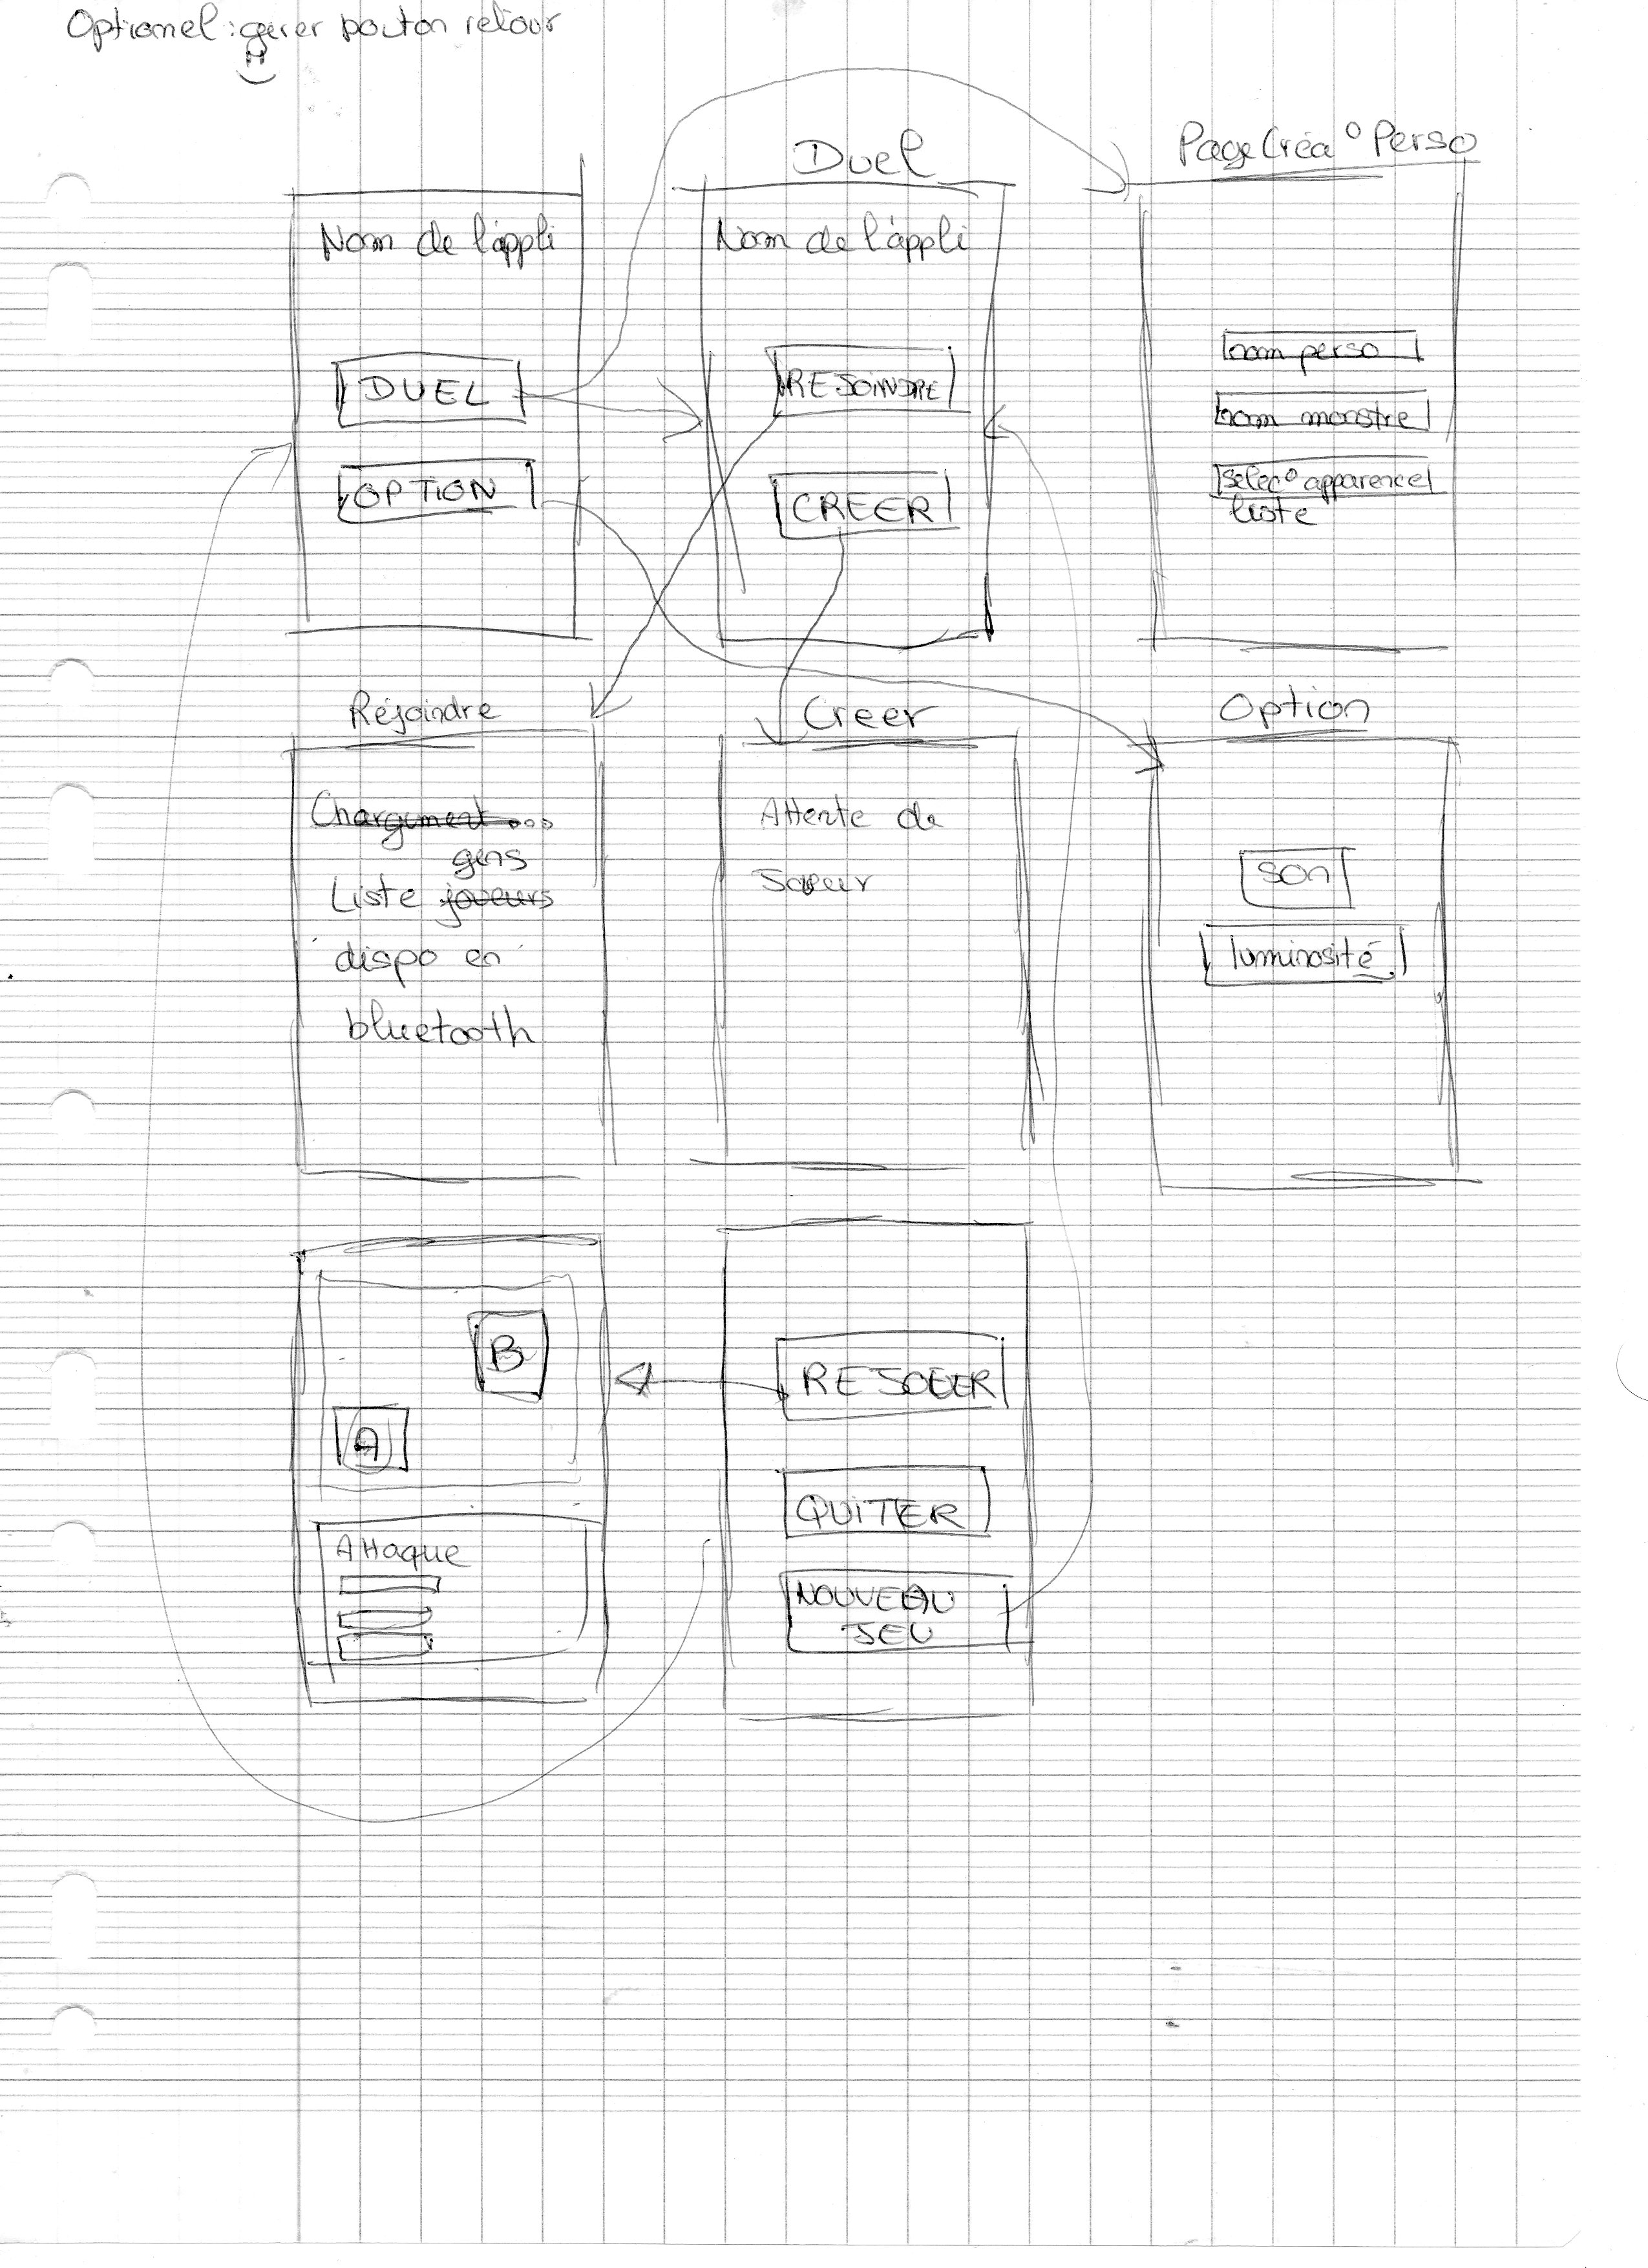 Optionnel : gérer bouton retour
Duel
Page Créa° Perso
Nom de l'appli
DUEL
OPTION
Nom de l'appli
REJOINDRE
CREER
nom perso
nom monstre
selec° apparence
liste
Rejoindre
Chargement...
gens
Liste joueurs
dispo en
bluetooth
Creer
Attente de
Joueur
Option
son
luminosité
B
A
Attaque
REJOUER
QUITER
NOUVEAU
JEU